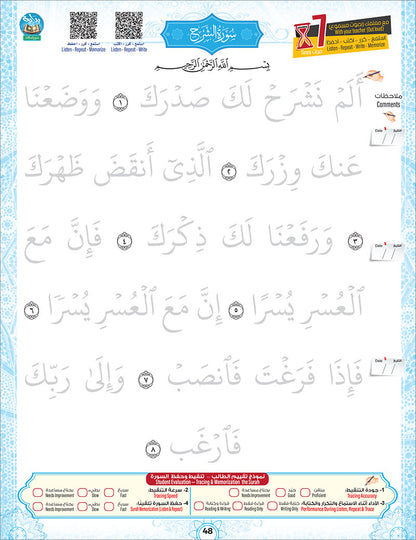 سورة الشرح
7
مع معلمك (صوت مسموع)
With your teacher (Out loud)
استمع - كرر - اكتب - احفظ
Listen - Repeat - Write - Memorize
استمع - كرر - اكتب
Listen - Repeat - Write
استمع - كرر - احفظ
Listen - Repeat - Memorize
بِسْمِ اللَّهِ الرَّحْمَٰنِ الرَّحِيمِ
ملاحظات
Comments
أَلَمْ نَشْرَحْ لَكَ صَدْرَكَ ١ وَوَضَعْنَا
عَنكَ وِزْرَكَ ٢ ٱلَّذِىٓ أَنقَضَ ظَهْرَكَ
٣ وَرَفَعْنَا لَكَ ذِكْرَكَ ٤ فَإِنَّ مَعَ
ٱلْعُسْرِ يُسْرًا ٥ إِنَّ مَعَ ٱلْعُسْرِ يُسْرًا ٦
فَإِذَا فَرَغْتَ فَٱنصَبْ ٧ وَإِلَىٰ رَبِّكَ
فَٱرْغَب ٨
نموذج تقييم الطالب - تنقيط وحفظ السورة
Student Evaluation – Tracing & Memorization the Surah
1- جودة التنقيط:
Tracing Accuracy
Proficient
جيد
Good
يحتاج مساعدة
Needs Improvement
2- سرعة التنقيط:
Tracing Speed
سريع
Fast
بطيء
Slow
يحتاج مساعدة
Needs Improvement
3- الأداء أثناء الاستماع والتكرار والكتابة:
Performance During Listen, Repeat & Trace
كتابة فقط
Writing Only
قراءة فقط
Reading Only
قراءة وكتابة
Reading & Writing
4- حفظ السورة تلقينًا:
Surah Memorization (Listen & Repeat)
سريع
Fast
بطيء
Slow
يحتاج مساعدة
Needs Improvement
48